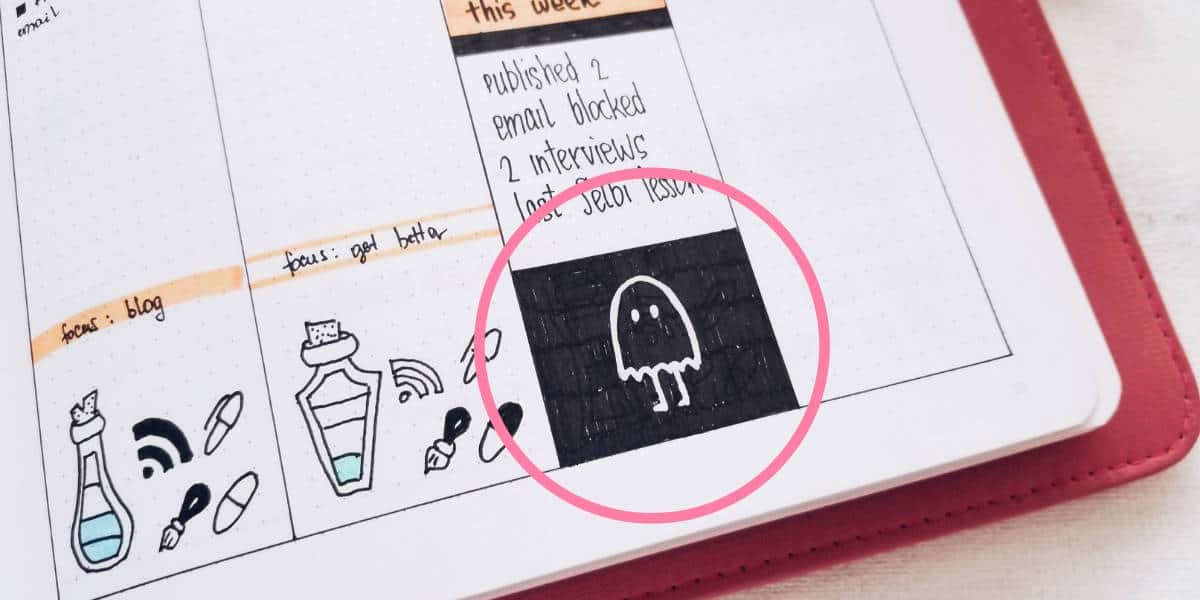 email
this week
published 2
email blocked
2 interviews
last Selbi lesson
focus: get better
focus: blog